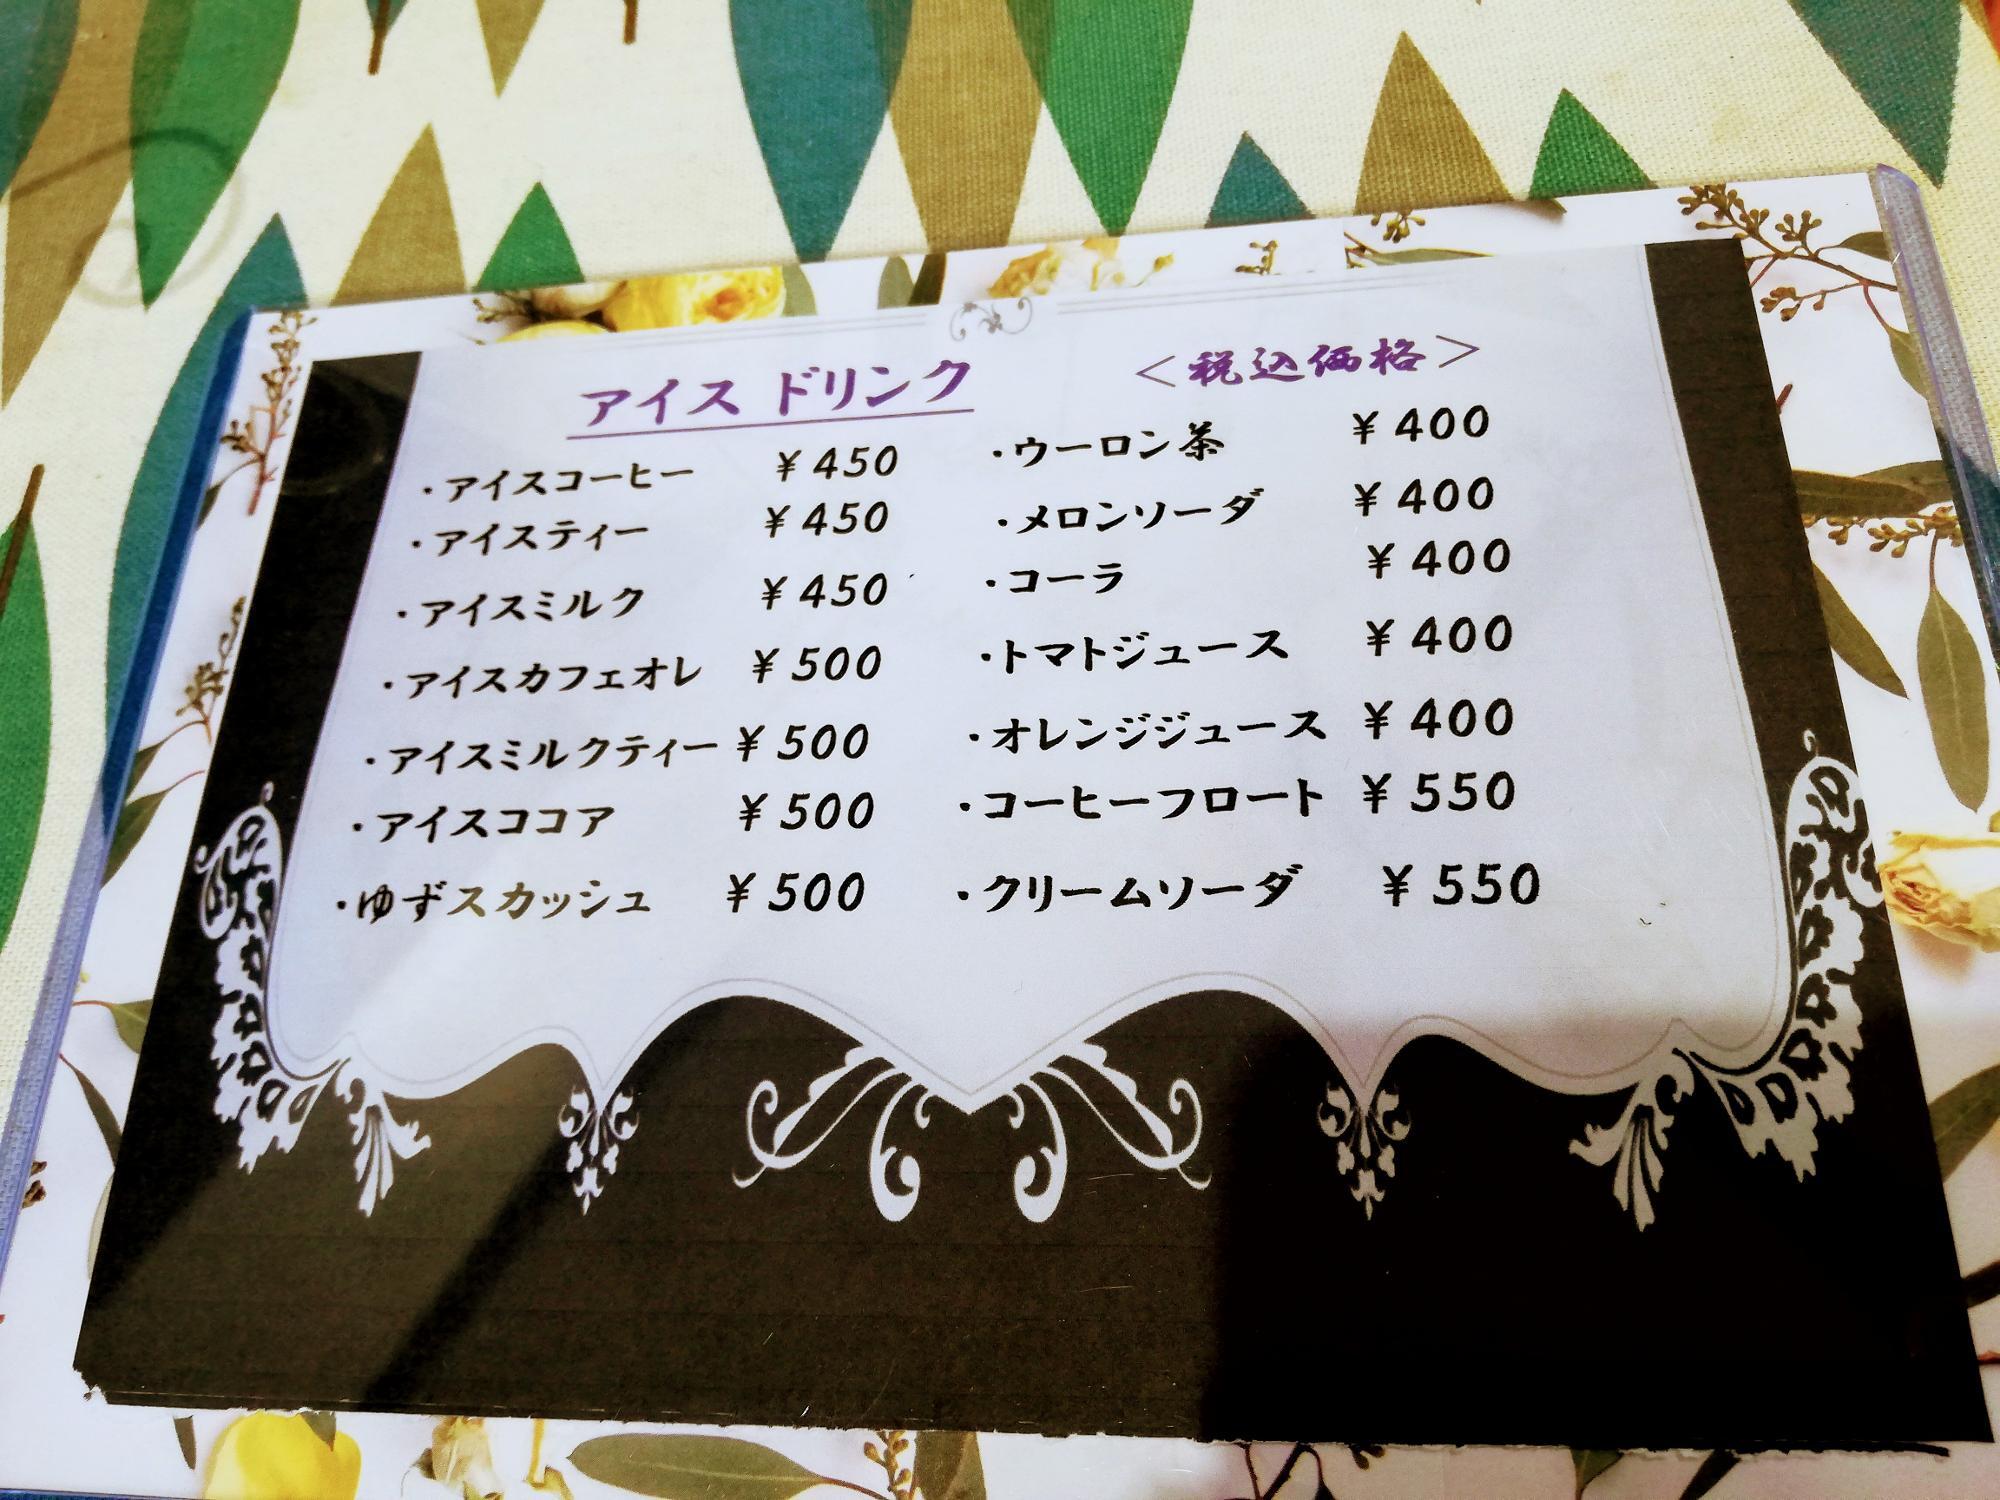 アイス ドリンク
＜税込価格＞
・アイスコーヒー ¥450
・アイスティー ¥450
・アイスミルク ¥450
・アイスカフェオレ ¥500
・アイスミルクティー ¥500
・アイスココア ¥500
・ゆずスカッシュ ¥500
・ウーロン茶 ¥400
・メロンソーダ ¥400
・コーラ ¥400
・トマトジュース ¥400
・オレンジジュース ¥400
・コーヒーフロート ¥550
・クリームソーダ ¥550